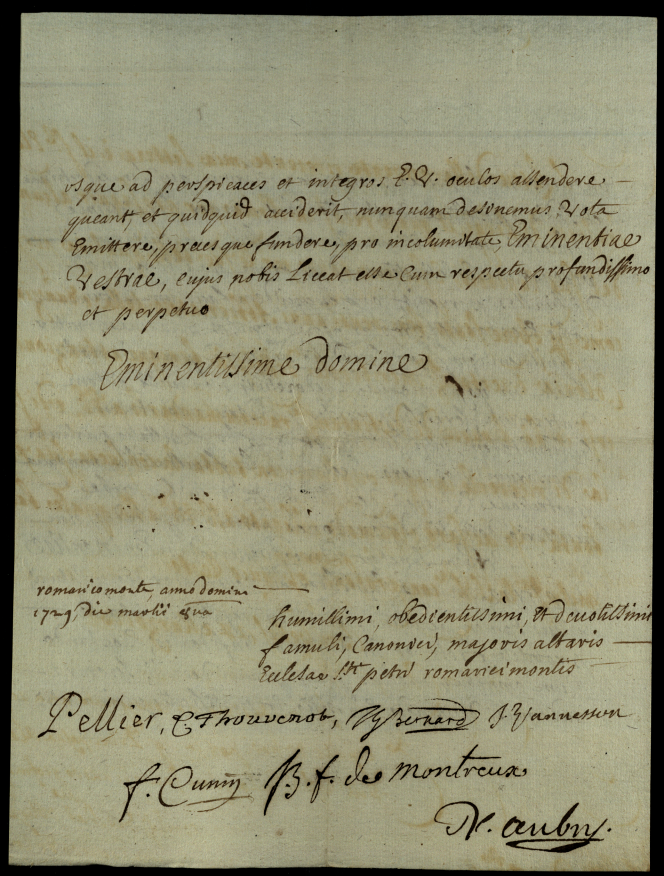 usque ad perspicaces et integros E. V. oculos assendere
queant, et quidquid acciderit, nunquam desinemus Vota
Emittere, precesque fundere, pro incolumitate, Eminentiae
Vestrae, cujus nobis Liceat esse Cum respectu profundissimo
et perpetuo
Eminentissime domine
romarico monte, anno domini
1729, die martii
humillimi, obedientissimi, et devotissimi
famuli, Canonici, majoris altaris
Ecclesae Sti petri romarici montis
Pellier, C. Thouvenot, Bernard
f. Cuny B. f. de montreux
N. aubry.